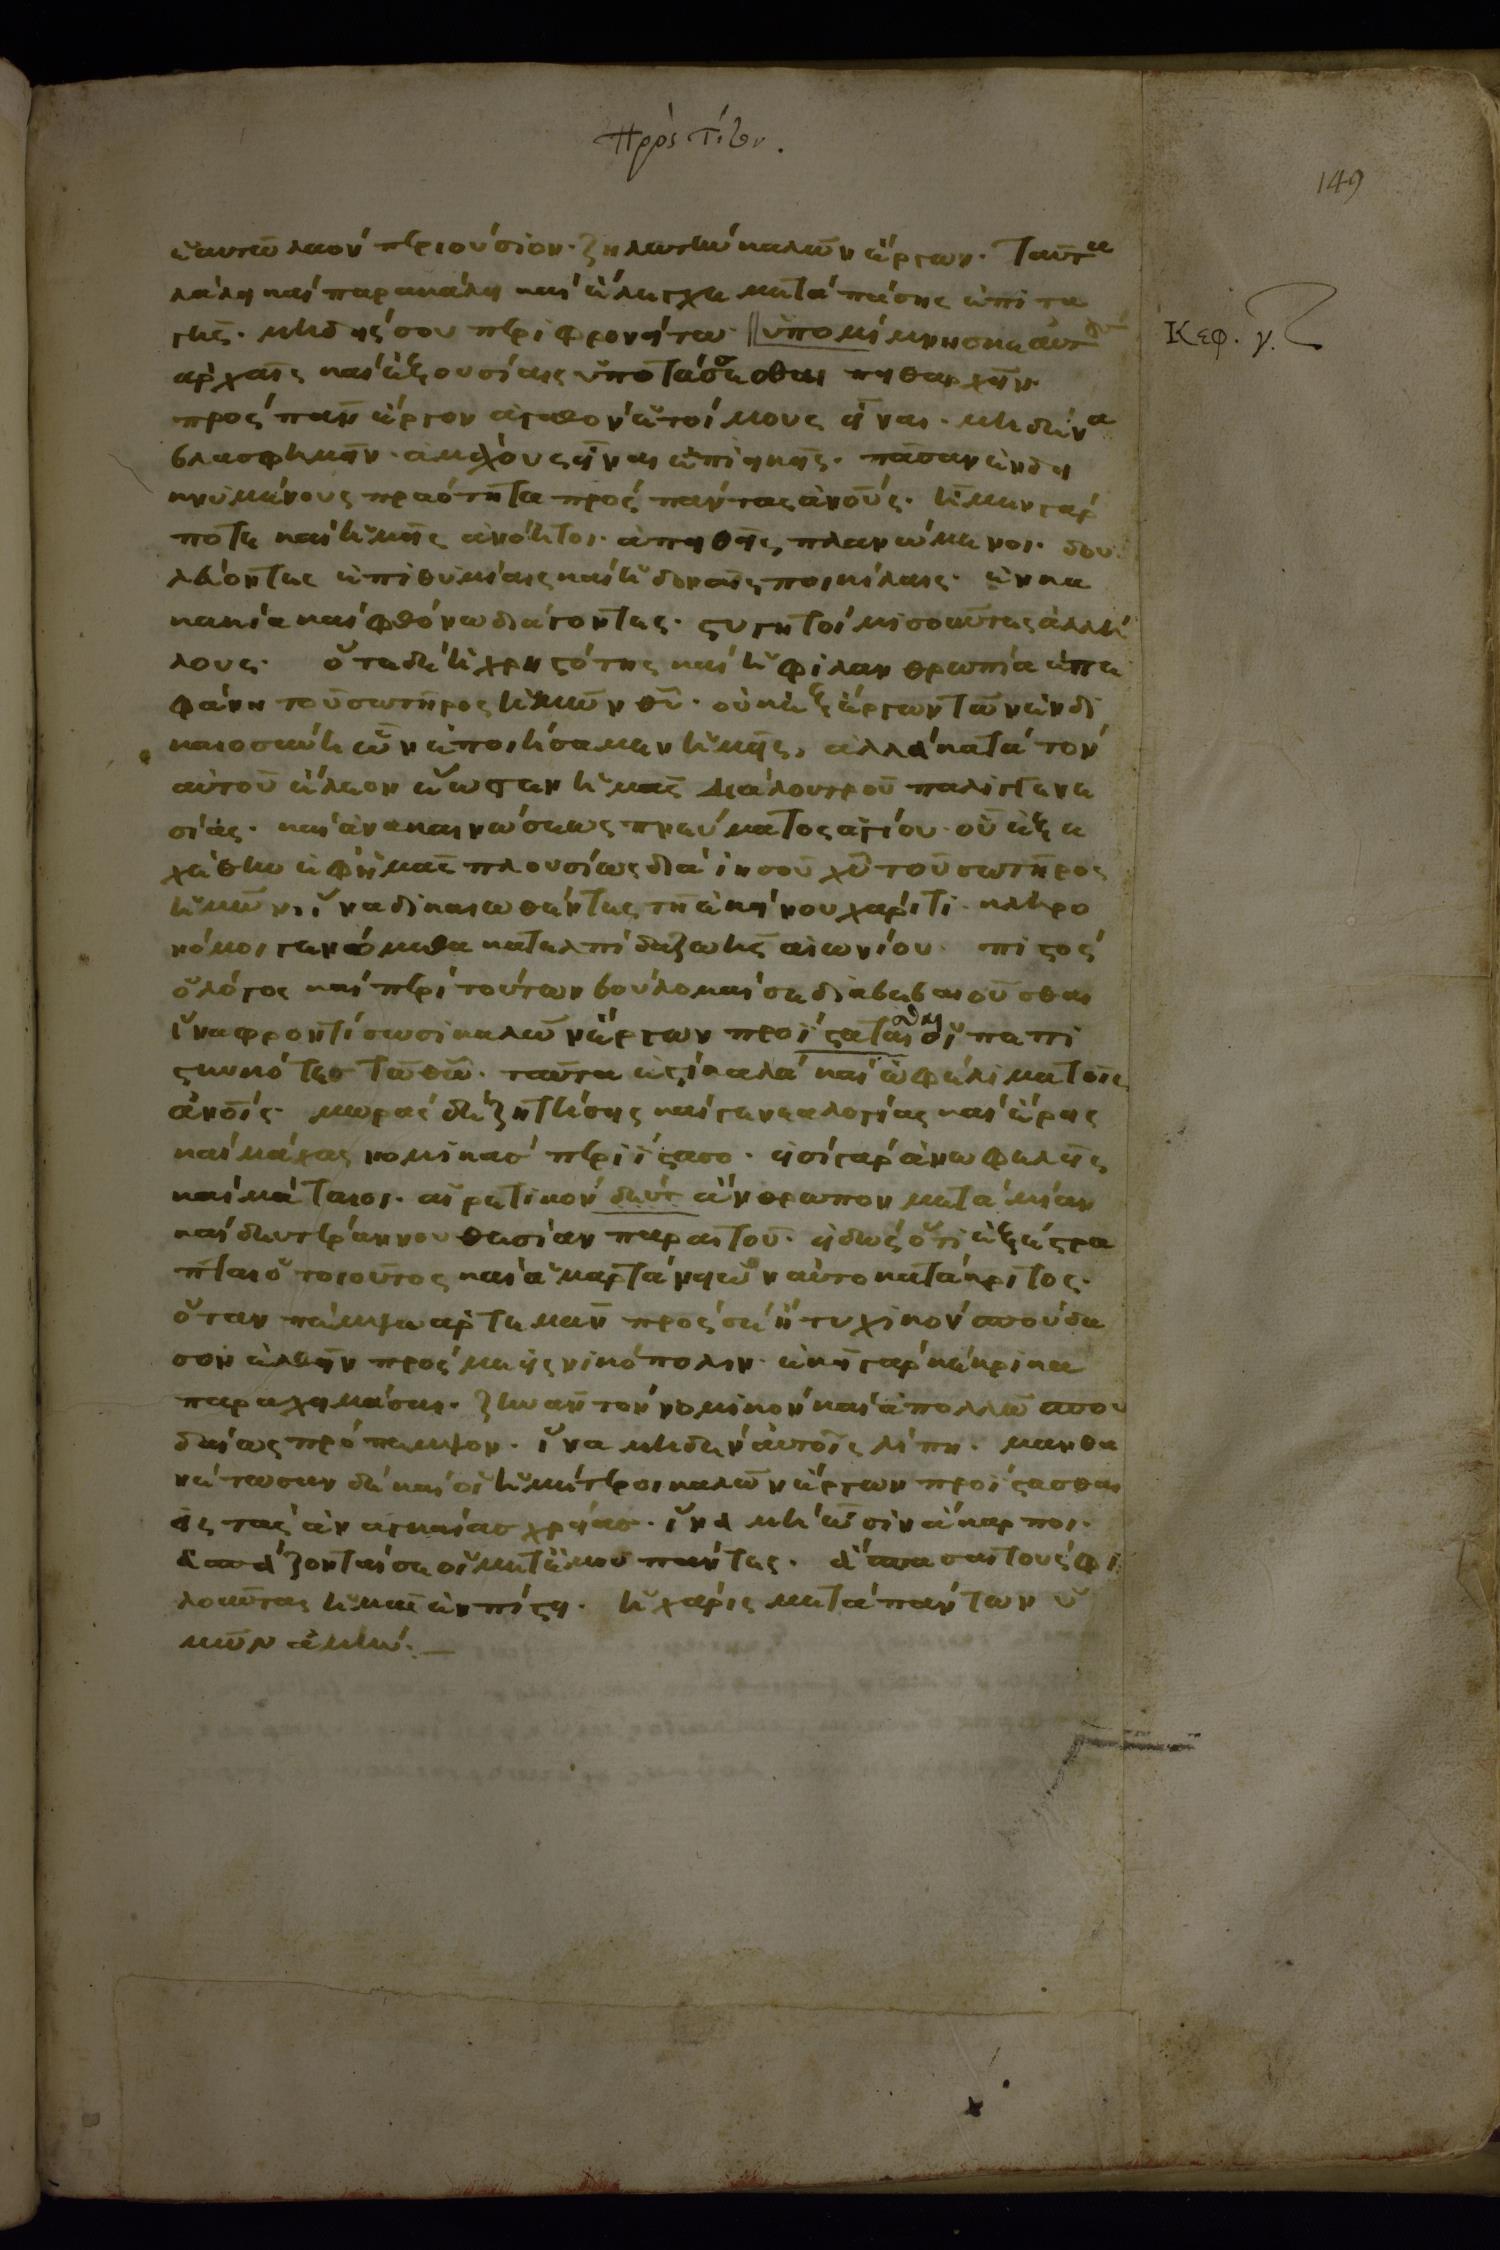 Πρὸς Τίτον.
149
ἑαυτῶ λαὸν περιούσιον· ζηλωτὴν καλῶν ἔργων. Ταῦτα
λάλει καὶ παρακάλει καὶ ἔλεγχε μετὰ πάσης ἐπιτα
γῆς. μηδείς σου περιφρονείτω· ὑπομίμνησκε αὐτοὺς
Κεφ. γ.
ἀρχαῖς καὶ ἐξουσίαις ὑποτάσσεσθαι πειθαρχεῖν·
πρὸς πᾶν ἔργον ἀγαθὸν ἑτοίμους εἶναι. μηδένα
βλασφημεῖν· ἀμάχους εἶναι ἐπιεικεῖς. πᾶσαν ἐνδει
κνυμένους πραότητα πρὸς πάντας ἀνους. ἦμεν γάρ
ποτε καὶ ἡμεῖς ἀνόητοι· ἀπειθεῖς, πλανώμενοι. δου
λεύοντες ἐπιθυμίαις καὶ ἡδοναῖς ποικίλαις. ἐν κα
κακία καὶ φθόνω διάγοντες. στυγητοὶ μισοῦντες ἀλλή
λους. ὅτε δὲ ἡ χρηστότης καὶ ἡ φιλανθρωπία ἐπε
φάνη τοῦ σωτῆρος ἡμῶν θυ. οὐκ ἐξ ἔργων τῶν ἐν δι
καιοσύνη ὧν ἐποιήσαμεν ἡμεῖς, ἀλλὰ κατὰ τὸν
αὐτοῦ ἔλεον ἔσωσεν ἡμᾶς διὰ λουτροῦ παλιγγενε
σίας. καὶ ἀνακαινώσεως πνεύματος ἁγίου. οὗ ἐξε
χέθη ἐφ' ἡμᾶς πλουσίως διὰ ἰησοῦ χυ τοῦ σωτῆρος
ἡμῶν, ἵνα δικαιωθέντες τῆ ἐκείνου χάριτι. κληρο
νόμοι γενόμεθα κατελπίδα ζωῆς αἰωνίου. πιστὸς
ὁ λόγος καὶ περὶ τούτων βούλομαί σε διαβεβαιοῦσθαι
ἵνα φροντίσωσι καλῶν ἔργων προΐστασθαι οἱ πεπι
στευκότες τῶ θω. ταῦτα ἐστὶ καλὰ καὶ ὠφέλιμα τοῖς
ἀνοις. μωρὰς δὲ ζητήσεις καὶ γενεαλογίας καὶ ἔρεις
καὶ μάχας νομικὰς περιΐστασο. εἰσὶ γὰρ ἀνωφελεῖς
καὶ μάταιοι. αἱρετικὸν ἄνθρωπον μετὰ μίαν
καὶ δευτέραν νουθεσίαν παραιτοῦ. εἰδὼς ὅτι ἐξέστρα
πται ὁ τοιοῦτος καὶ ἁμαρτάνει ὢν αὐτοκατάκριτος.
ὅταν πέμψω ἀρτεμᾶν πρὸς σὲ ἢ τυχικὸν σπούδα
σον ἐλθεῖν πρός με εἰς νικόπολιν. ἐκεῖ γὰρ κέκρικα
παραχειμάσαι. ζηνᾶν τὸν νομικὸν καὶ ἀπολλῶ σπου
δαίως πρόπεμψον. ἵνα μηδὲν αὐτοῖς λίπη. μανθα
νέτωσαν δὲ καὶ οἱ ἡμέτεροι καλῶν ἔργων προΐστασθαι
εἰς τὰς ἀναγκαίας χρείας. ἵνα μὴ ὦσιν ἄκαρποι.
ἀσπάζονταί σε οἱ μετ' ἐμοῦ πάντες. ἄσπασαι τοὺς φι
λοῦντας ἡμᾶς ἐν πίστει. ἡ χάρις μετὰ πάντων ὑ
μῶν ἀμήν.